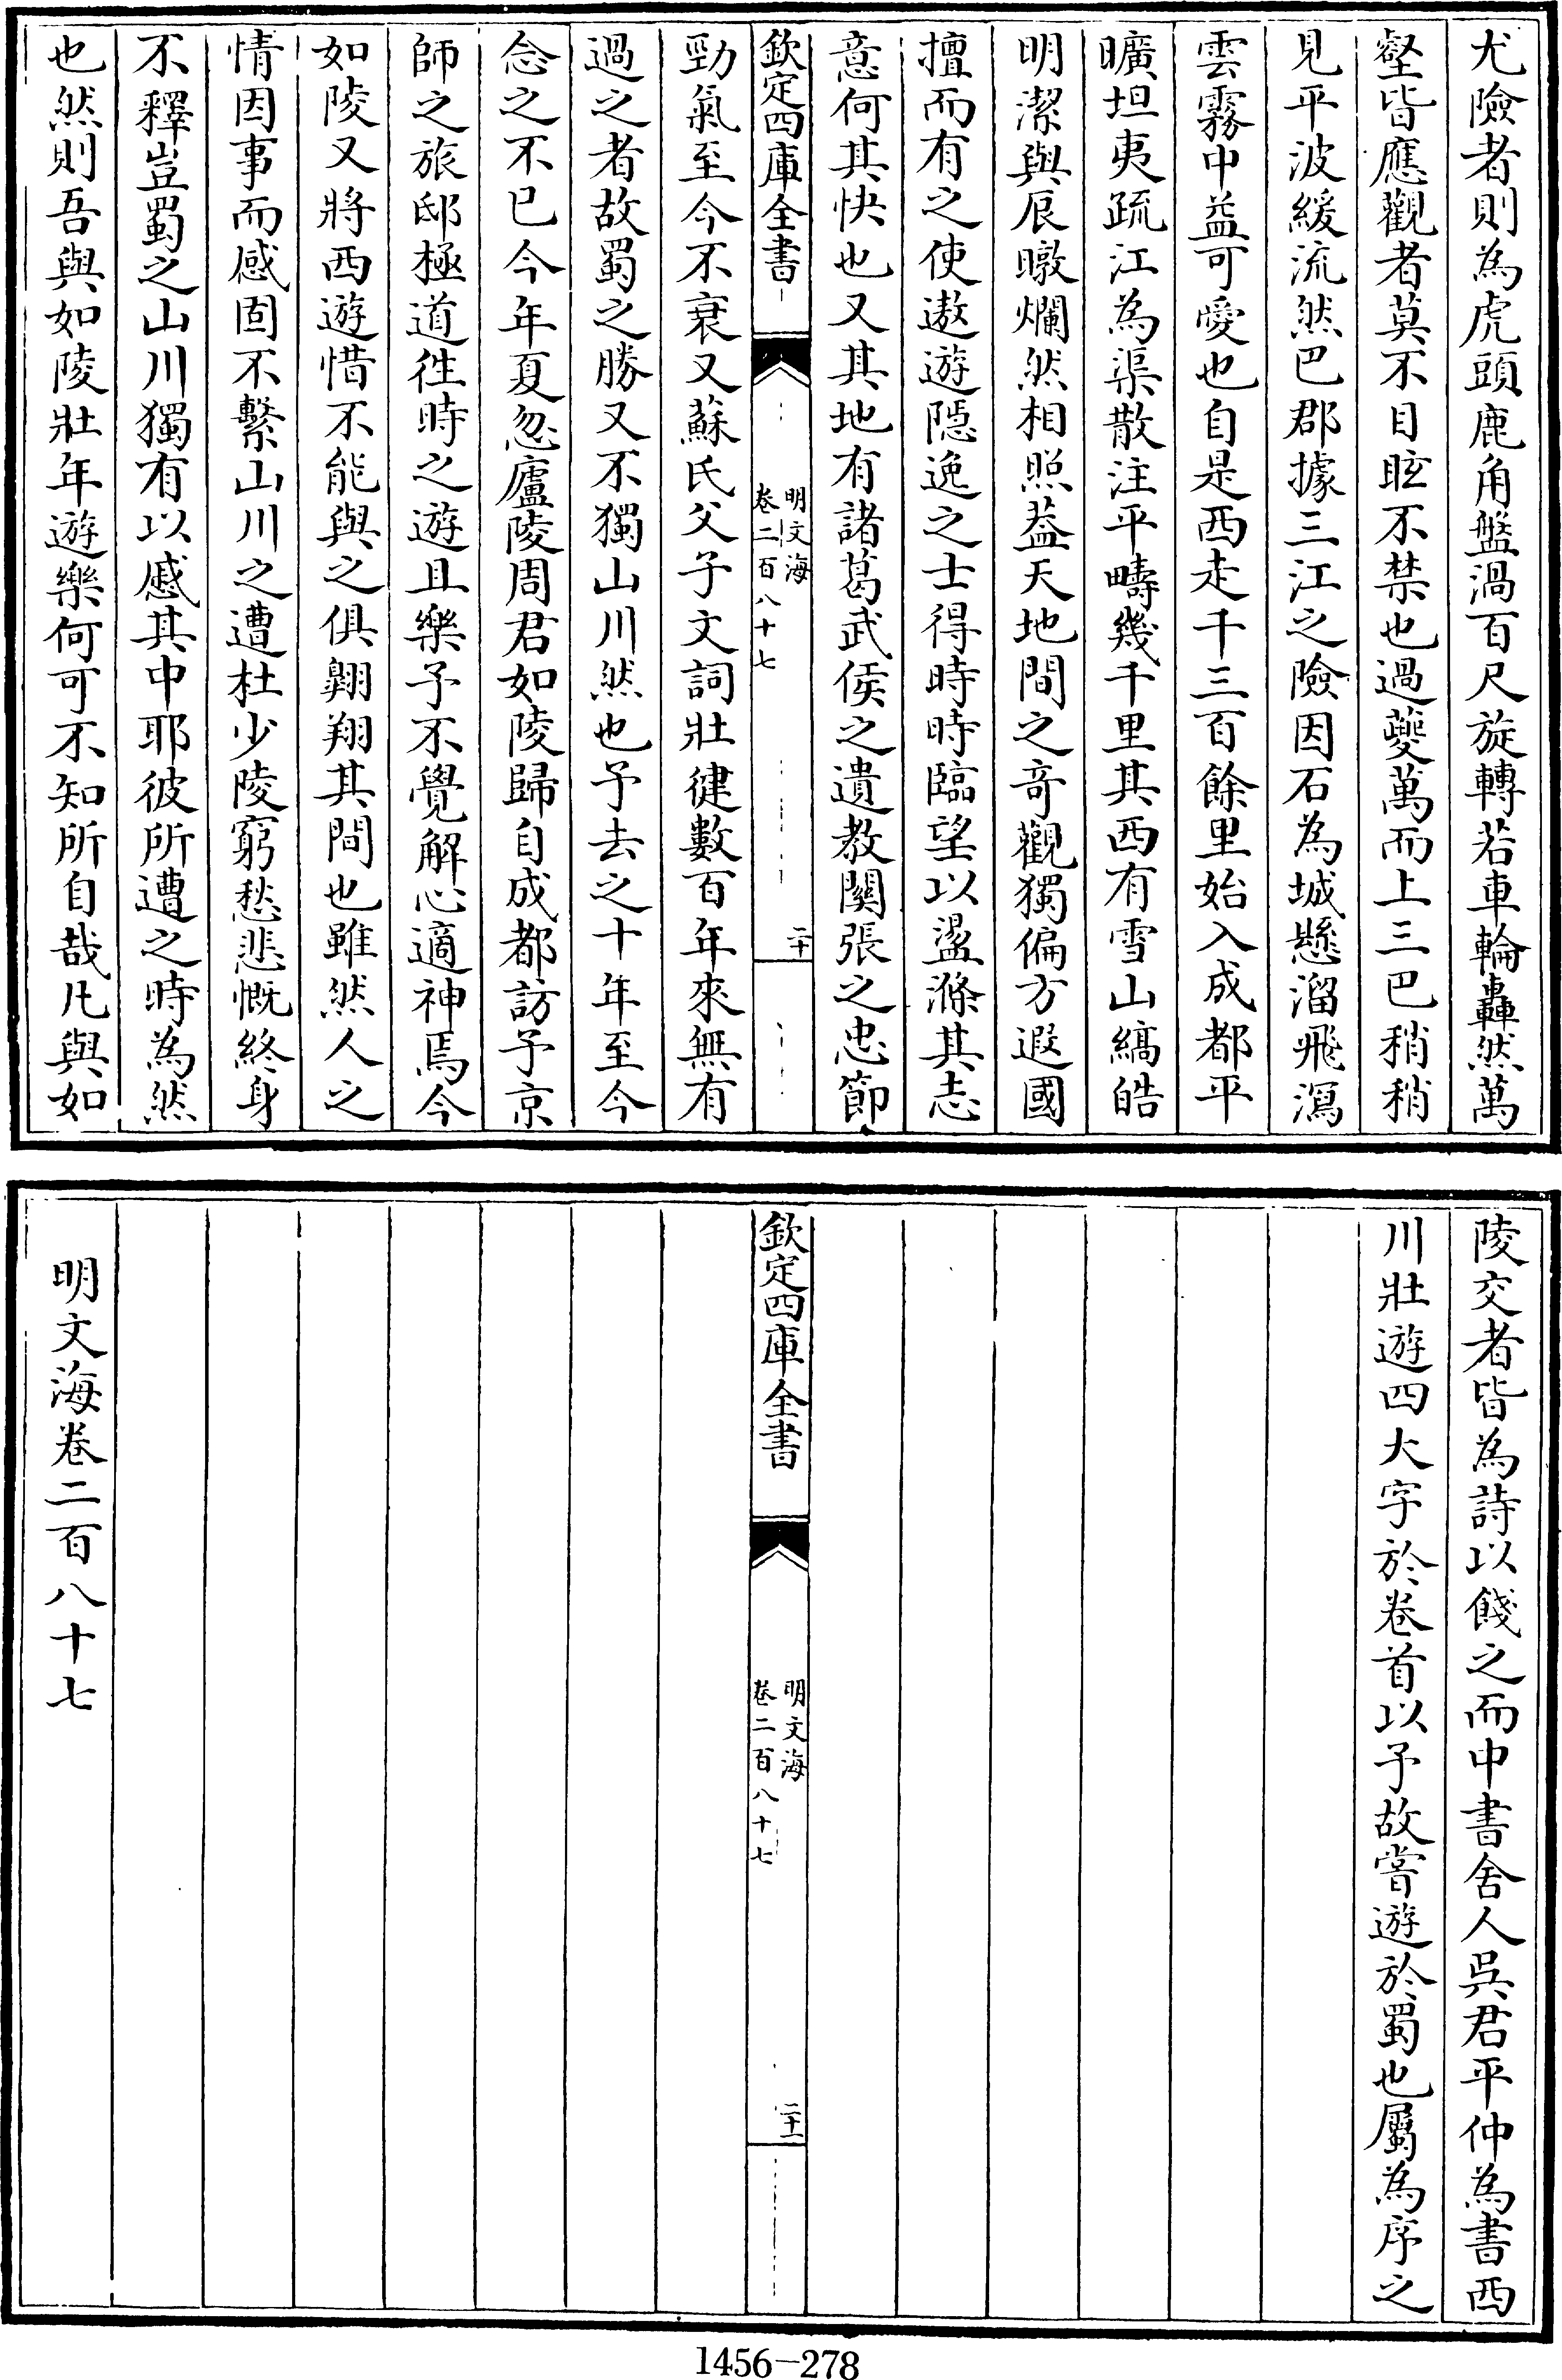 尤險者則為虎頭鹿角盤渦百尺旋轉若車輪轟然萬
壑皆應觀者莫不目眩不禁也過夔萬而上三巴稍稍
見平波緩流然巴郡據三江之險因石為城懸溜飛瀉
雲霧中益可愛也自是西走千三百餘里始入成都平
曠坦夷疏江為渠散注平疇幾千里其西有雪山縞皓
明潔與辰暾爛然相照葢天地間之奇觀獨偏方遐國
擅而有之使遨遊隠逸之士得時時臨望以盪滌其志
意何其快也又其地有諸葛武侯之遺教關張之忠節
欽定四庫全書
明文海
卷二百八十七
二十
勁氣至今不衰又蘇氏父子文詞壯健數百年來無有
過之者故蜀之勝又不獨山川然也予去之十年至今
念之不已今年夏忽廬陵周君如陵歸自成都訪予京
師之旅邸極道徃時之遊且樂予不覺解心適神焉今
如陵又將西遊惜不能與之俱翺翔其間也雖然人之
情因事而感固不繫山川之遭杜少陵窮愁悲慨終身
不釋豈蜀之山川獨有以慼其中耶彼所遭之時為然
也然則吾與如陵壯年遊樂何可不知所自哉凡與如
陵交者皆為詩以餞之而中書舍人吳君平仲為書西
川壯遊四大字於卷首以予故嘗遊於蜀也屬為序之
欽定四庫全書
明文海
卷二百八十七
二十一
明文海卷二百八十七
1456-278